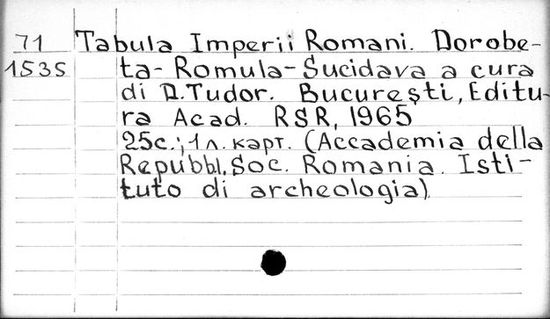 71 Tabula Imperii Romani. Dorobe-
1535 ta-Romula-Sucidava a cura
di D.Tudor. Bucureşti, Editu-
ra Acad. RSR, 1965
25с.; 1л. карт. (Accademia della
Repubbl. Soc. Romania. Isti-
tuto di archeologia)